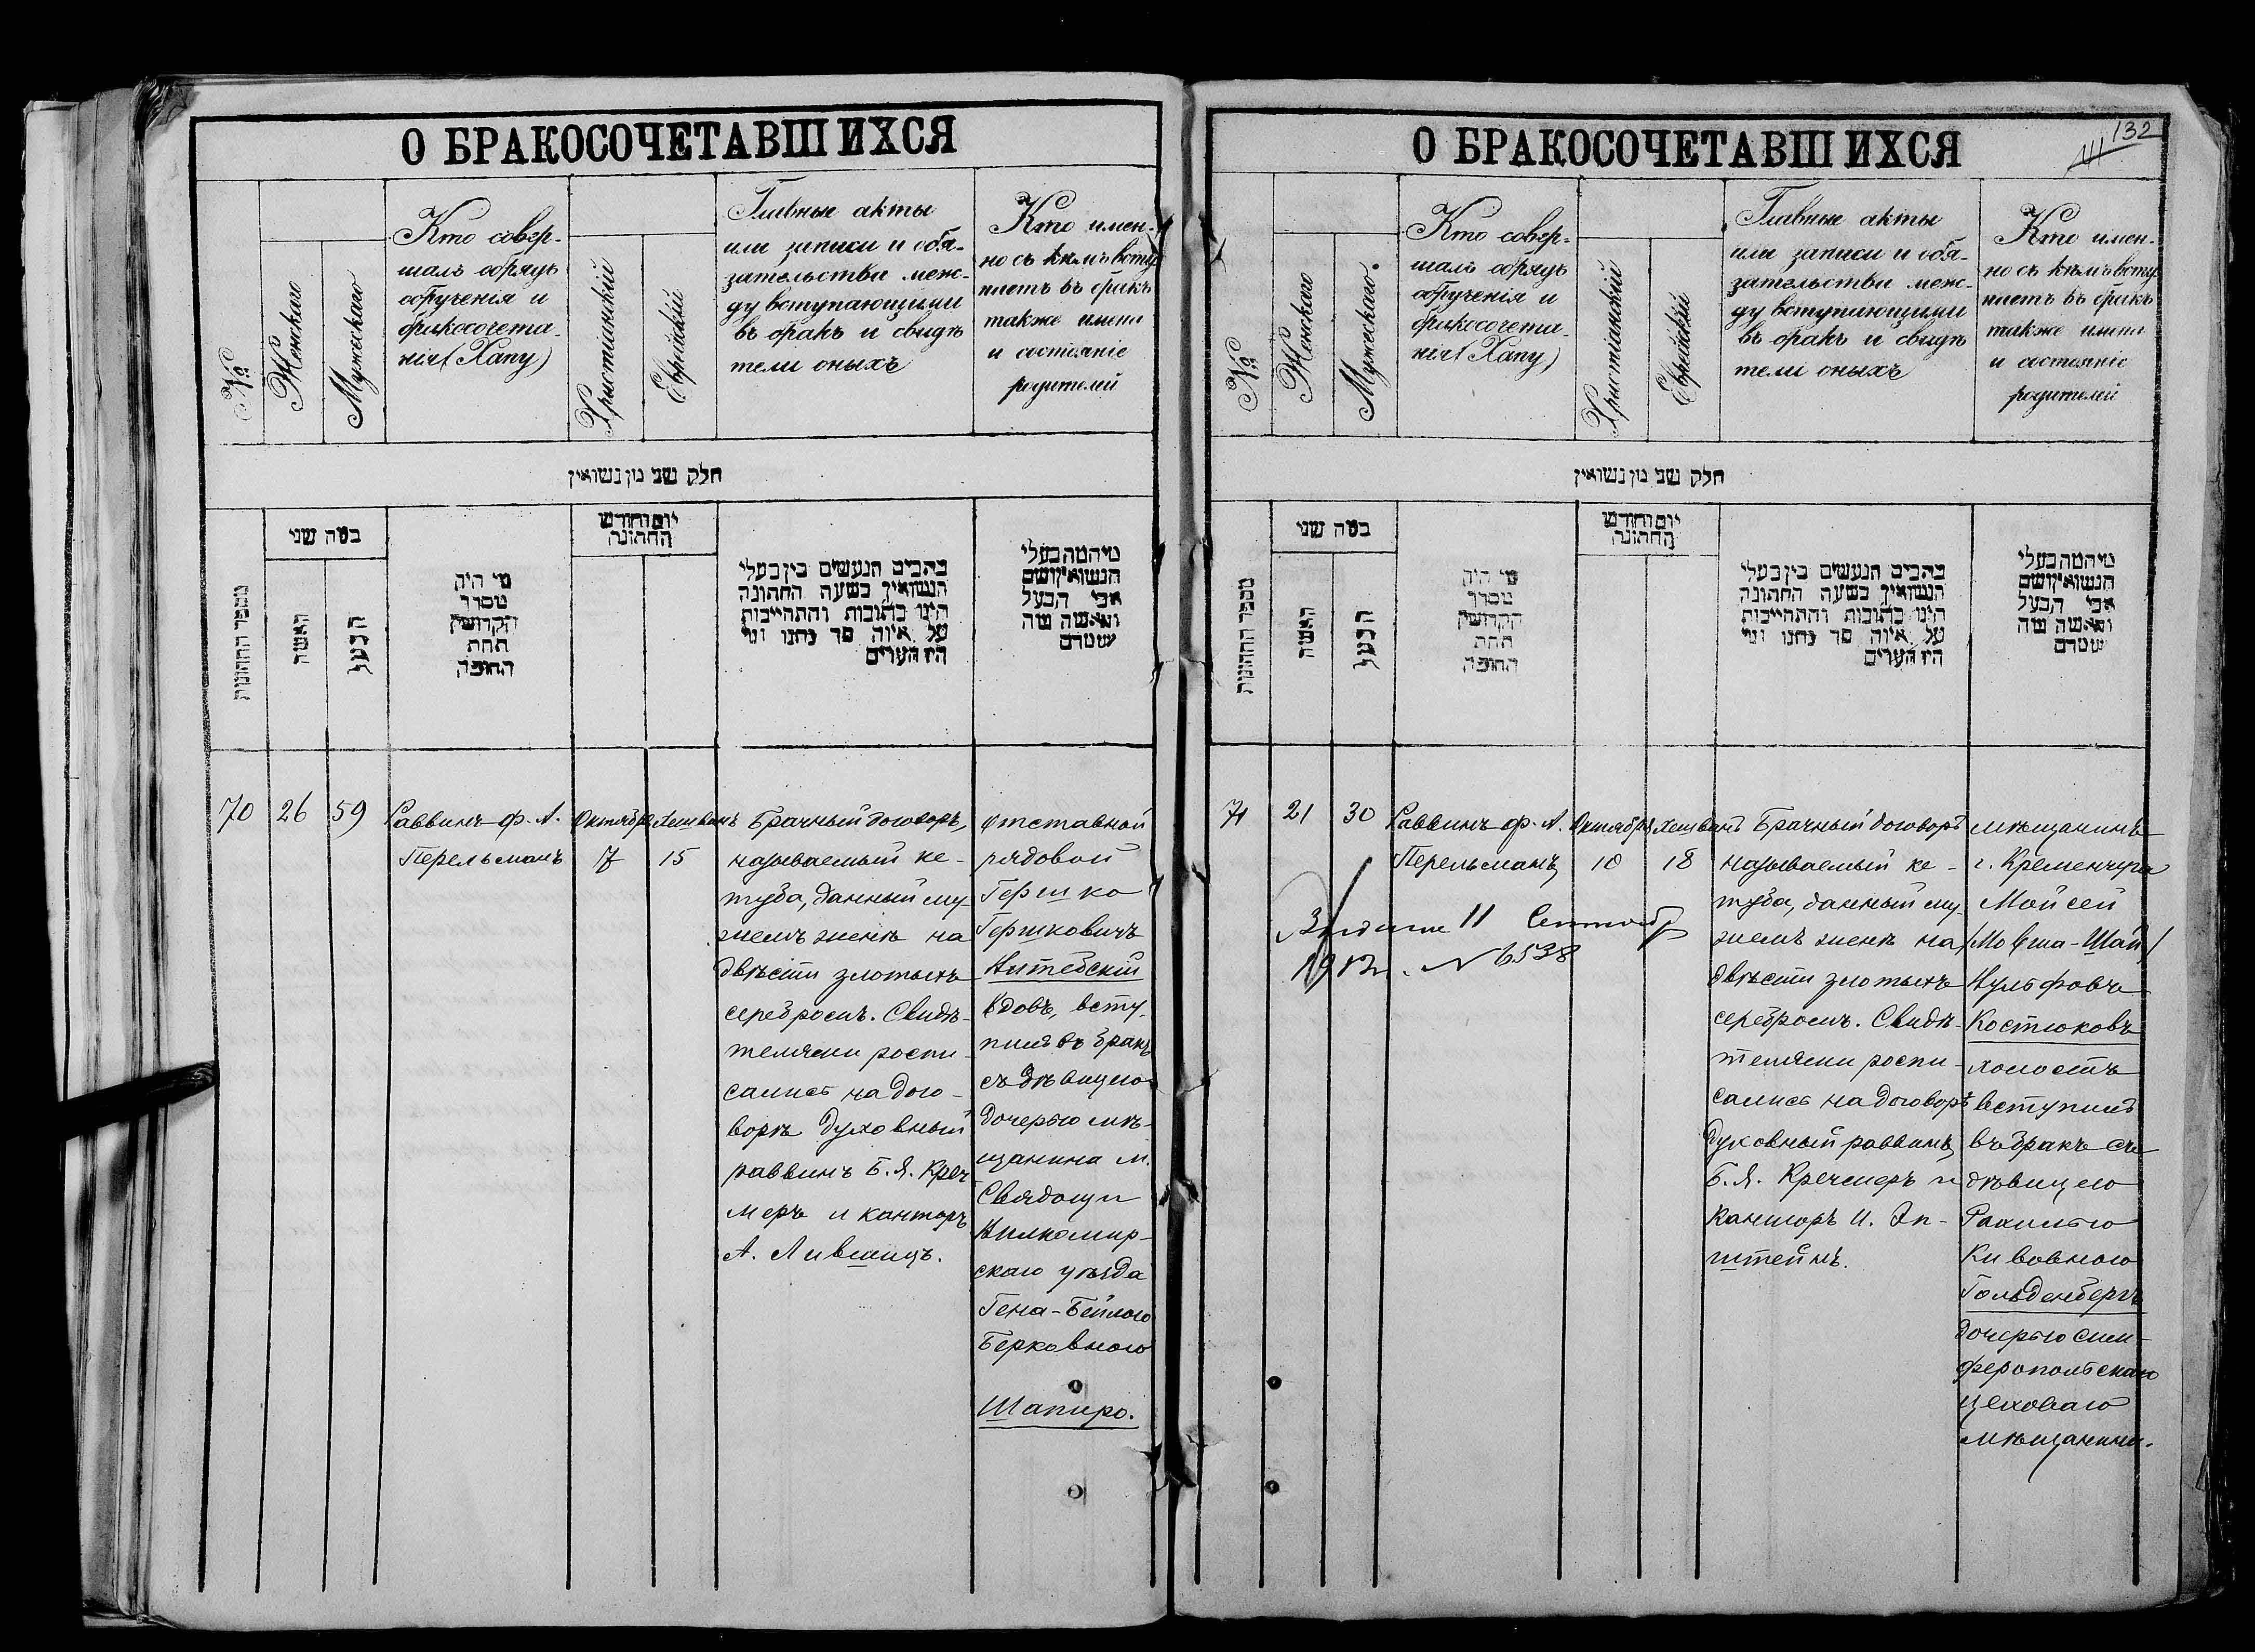 О БРАКОСОЧЕТАВШИХСЯ
№
Женскаго
Мужескаго
Кто совер-
шалъ обрядъ
обрученія и
бракосочета-
нія (Хапу)
Христіанскій
Еврейскій
Главные акты
или записи и обя-
зательства меж-
ду вступающими
въ бракъ и свидѣ
тели оныхъ
Кто имен-
но съ кѣмъ всту
паетъ въ бракъ
также имена
и состояніе
родителей
חלק שני מן נשואין
מספר החתונות
כמה שני
האשה
הבעל
מי היה
מסדר
הקדושין
תחת
החופה
יום וחודש
החתונה
כתבים הנעשים בין בעלי
הנשואין בשעה החתונה
היינו כתובות והתחייבות
על איזה סך נתנו ומי
היו העדים
מי המה בעלי
הנשואין ושם
אבי הבעל
והאשה
70
26
59
Раввинъ ф. А.
Перельманъ
Октября
7
Хешванъ
15
Брачный договоръ,
называемый ке-
туба, данный му-
жемъ женѣ на
двѣсти злотыхъ
серебромъ. Свидѣ-
телями роспи-
сались на дого-
ворѣ духовный
раввинъ Б. Я. Креч
меръ и канторъ
А. Лившицъ.
отставной
рядовой
Гершко
Гершковичъ
Витебскій
вдовъ, всту-
пилъ въ бракъ
съ дѣвицею
дочерью мѣ-
щанина м.
Свядощи
Вилкомир-
скаго уѣзда
Гена-Бейлою
Берковною
Шапиро.
О БРАКОСОЧЕТАВШИХСЯ
132
№
Женскаго
Мужескаго.
Кто совер-
шалъ обрядъ
обрученія и
бракосочета-
нія (Хапу)
Христіанскій
Еврейскій
Главные акты
или записи и обя-
зательства меж-
ду вступающими
въ бракъ и свидѣ
тели оныхъ
Кто имен-
но съ кѣмъ всту
паетъ въ бракъ
также имена
и состояніе
родителей
חלק שני מן נשואין
מספר החתונות
כמה שני
האשה
הבעל
מי היה
מסדר
הקדושין
תחת
החופה
יום וחודש
החתונה
כתבים הנעשים בין בעלי
הנשואין בשעה החתונה
היינו כתובות והתחייבות
על איזה סך נתנו ומי
היו העדים
מי המה בעלי
הנשואין ושם
אבי הבעל
והאשה
71
21
30
Раввинъ ф. А.
Перельманъ
Октября
10
Хешванъ
18
Брачный договоръ
называемый ке-
туба, данный му-
жемъ женѣ на
двѣсти злотыхъ
серебромъ. Свидѣ-
телями роспи-
сались на договорѣ
духовный раввинъ
Б. Я. Кречмеръ и
канторъ И. Эп-
штейнъ.
мѣщанинъ
г. Кременчуга
Мойсей
/Мовша-Шая/
Вульфовъ
Костюковъ
холостъ
вступилъ
въ бракъ съ
дѣвицею
Рахилью
Кивовною
Гольденбергъ
дочерью сим-
феропольскаго
цеховаго
мѣщанина.
11 Сентябр
1912 г. N 6538